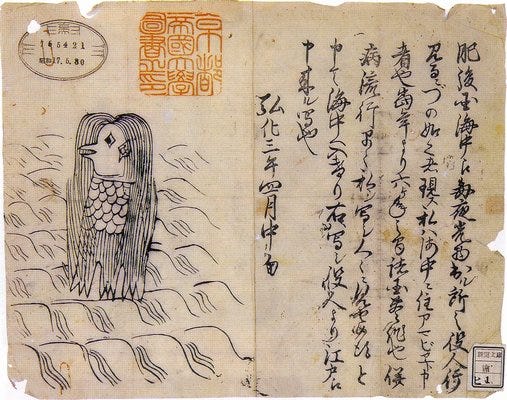 肥後国海中え毎夜光物出ル所之役人行
見るニづの如之者現ス私ハ海中ニ住アマビヱト申
者也當年より六ヶ年之間諸国豊作也併
病流行早々私ヲ写シ人々ニ見せ候得と
申て海中へ入けり右写シ役人より江戸え
申来ル写也
弘化三年四月中旬
京都
帝國大學
圖書之印
昭和17.5.30
新聞文庫